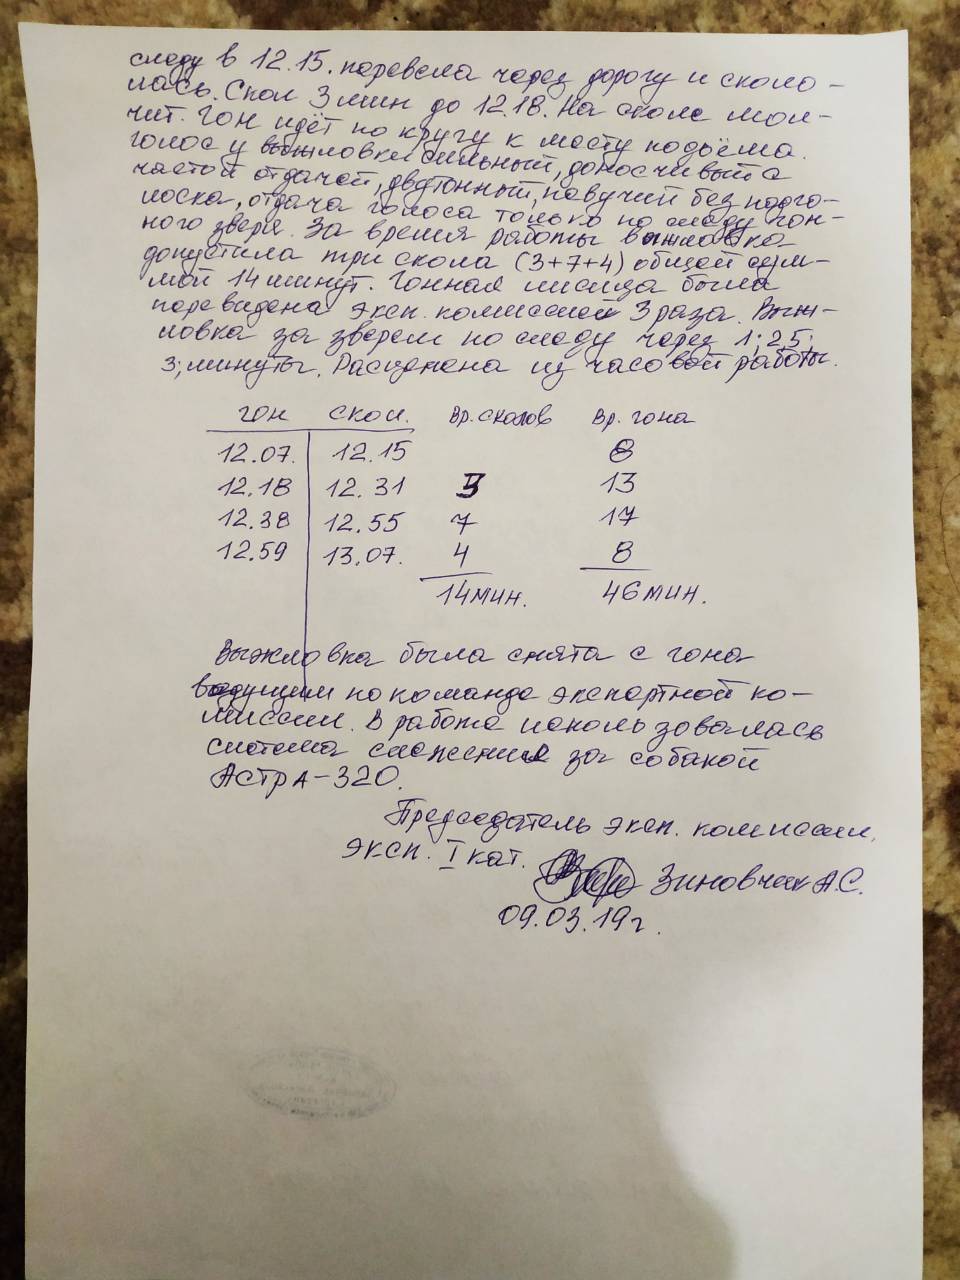 следу в 12.15. перевела через дорогу и сколо-
лась. Скол 3 мин до 12.18. На сколе мол-
чит. Гон идёт по кругу к месту подъёма.
Голос у выжловки сильный, доносчивый с
частой отдачей, двутонный, певучий без подго-
лоска, отдача голоса только по следу гон-
ного зверя. За время работы выжловка
допустила три скола (3+7+4) общей сум-
мой 14 минут. Гонная лисица была
перевидена эксп. комиссией 3 раза. Выж-
ловка за зверем по следу через 1; 2,5;
3; минуты. Расценена из часовой работы.
гон скол. Вр. сколов Вр. гона
12.07. 12.15 8
12.18 12.31 3 13
12.38 12.55 7 17
12.59 13.07. 4 8
14 мин. 46 мин.
Выжловка была снята с гона
ведущим по команде экспертной ко-
миссии. В работе использовалась
система слежения за собакой
Астра-320.
Председатель эксп. комиссии,
эксп. I кат. Зиновчик А.С.
09.03.19г.